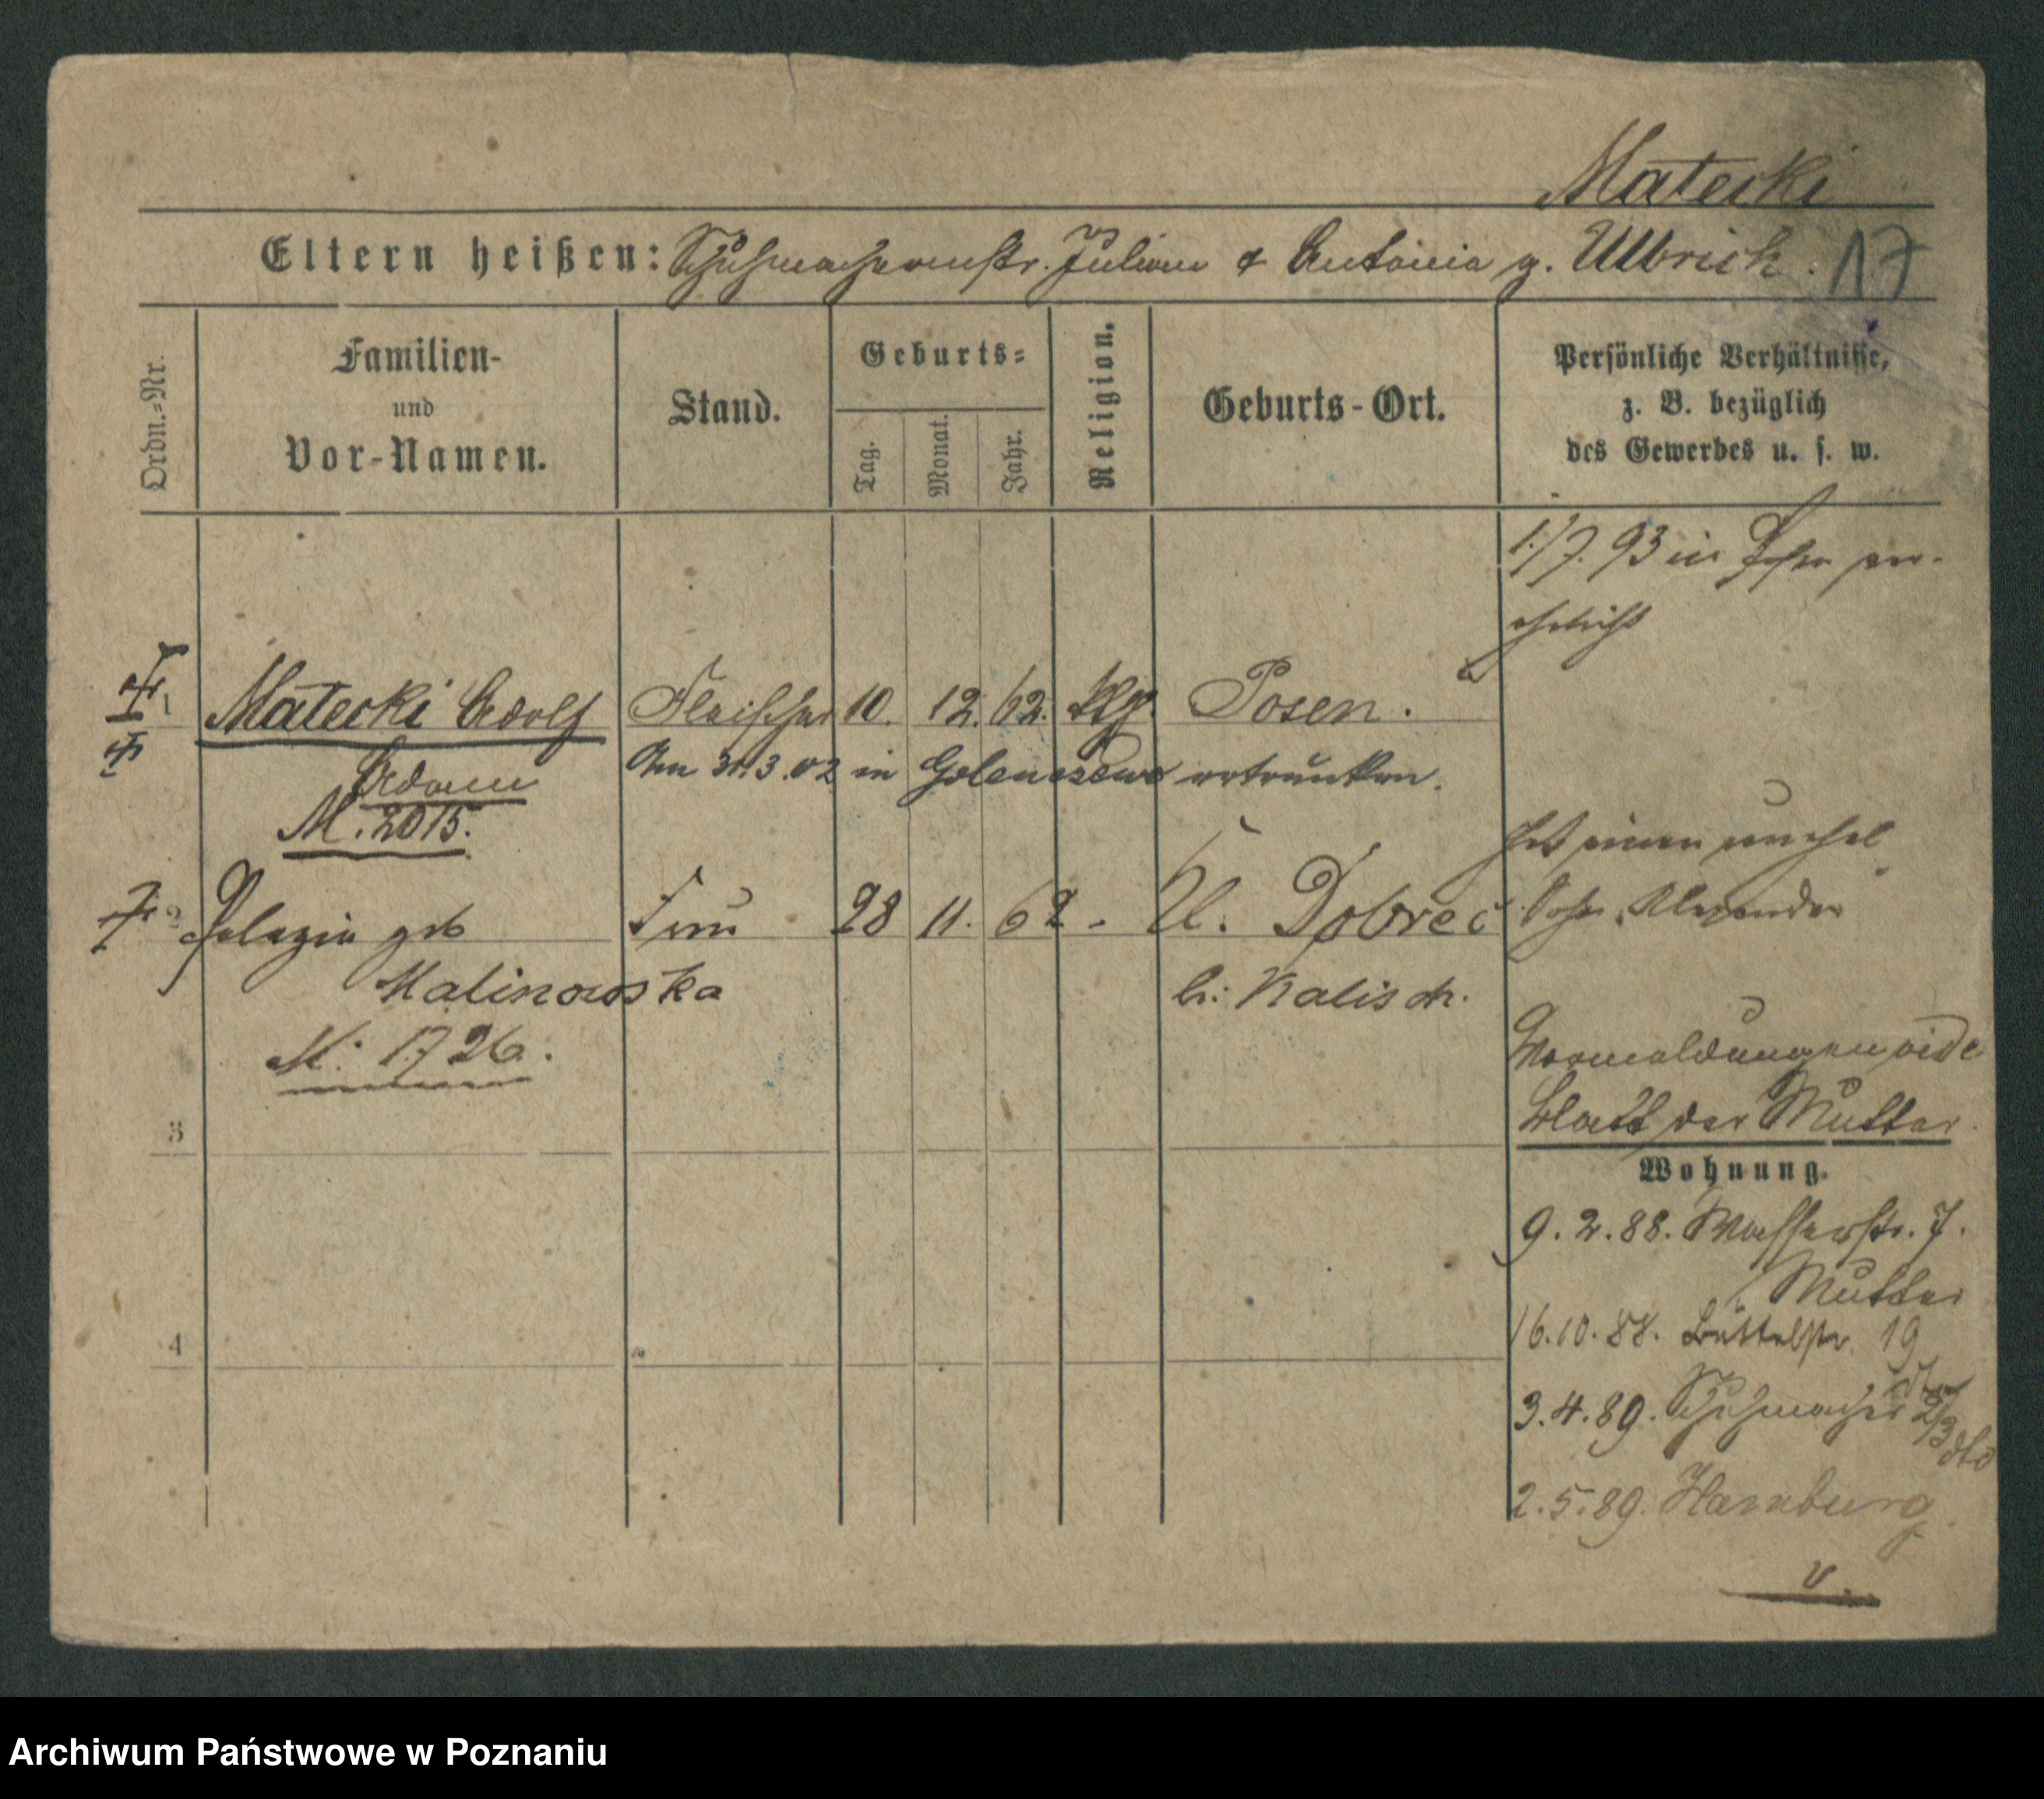 Matecki
Eltern heißen: Schuhmachermstr. Julian & Antonia g. Ulbrich. 17
Ordn.-Nr.
Familien-
und
Vor-Namen.
Stand.
Geburts-
Tag.
Monat.
Jahr.
Religion.
Geburts-Ort.
Persönliche Verhältnisse,
z. B. bezüglich
des Gewerbes u. s. w.
1./7. 93 in Posen ver-
ehelicht
1 Matecki Adolf Fleischer 10. 12. 62. Posen.
Adam
Am 30/3.02 in ertrunken.
M. 2015.
hat einen unehel
2 Pelagia geb Frau 28 11. 62 - Kl. Dobrec Sohn Alexander
Malinowska bei Kalisch.
M: 1726.
Vormeldungen vide
Blatt der Mutter.
3
Wohnung.
9.2.88. Wasserstr. 7.
Mutter
16.10.88. Büttelstr. 19
4
3.4.89. Schuhmacherstr 2/3 dto
2.5.89. Hamburg
v.
Archiwum Państwowe w Poznaniu